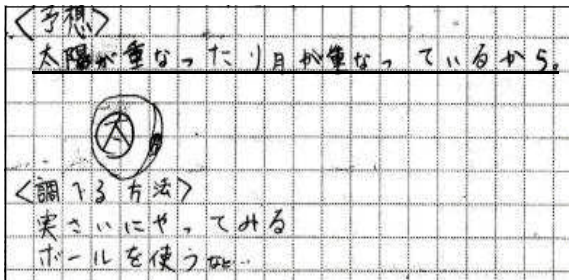 〈予想〉
太陽が重なったり月が重なっているから。
太
〈調べる方法〉
実さいにやってみる
ボールを使うなど…